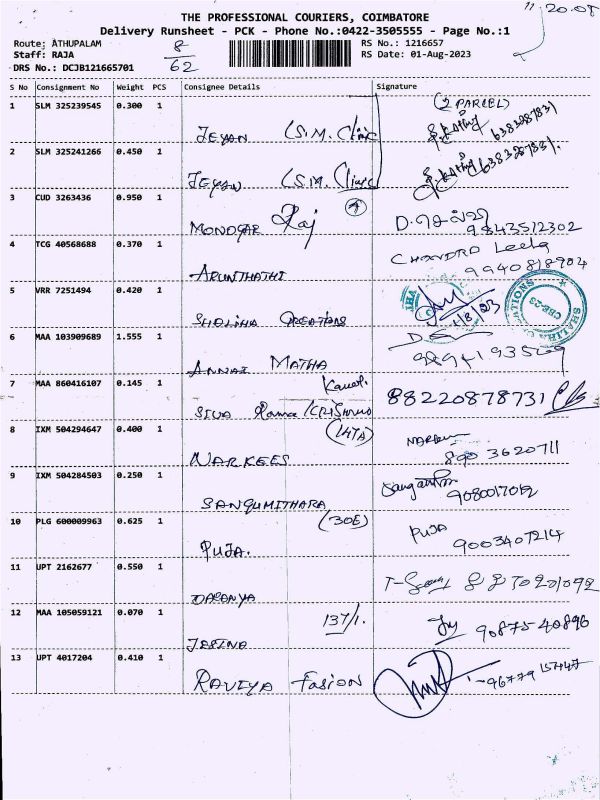 11 20.08
THE PROFESSIONAL COURIERS, COIMBATORE
Delivery Runsheet - PCK - Phone No.:0422-3505555 - Page No.:1
Route: ATHUPALAM 8 RS No.: 1216657
Staff: RAJA 62 RS Date: 01-Aug-2023
DRS No.: DCJB121665701
S No Consignment No Weight PCS Consignee Details Signature
1 SLM 325239545 0.300 1 (2 PARCEL)
JEYAN (S.M. Clinic 6383287831
2 SLM 325241266 0.450 1
JEYAN (S.M. Clinic 6383287831.
3 CUD 3263436 0.950 1
MONOGAR Raj 9843512302
4 TCG 40568688 0.370 1 CHANDRO Leela
ARUNTHATHI 9940818904
5 VRR 7251494 0.420 1
SHALIHA CREATIONS 1/8/23 SHALIHA CREATIONS CBE-23
6 MAA 103909689 1.555 1
ANNAI MATHA
7 MAA 860416107 0.145 1
SIVA Rama (CRISHNAS 88220878731
8 IXM 504294647 0.400 1 (147A)
NARKEES 890 3620711
9 IXM 504284503 0.250 1
SANGUMITHARA 9080017012
10 PLG 600009963 0.625 1 (30E) PUJA
PUJA. 9003407214
11 UPT 2162677 0.550 1
DASANYA
12 MAA 105059121 0.070 1 137/1.
JASINA 90875 40896
13 UPT 4017204 0.410 1
RAVIYA Fasion 96779 15747